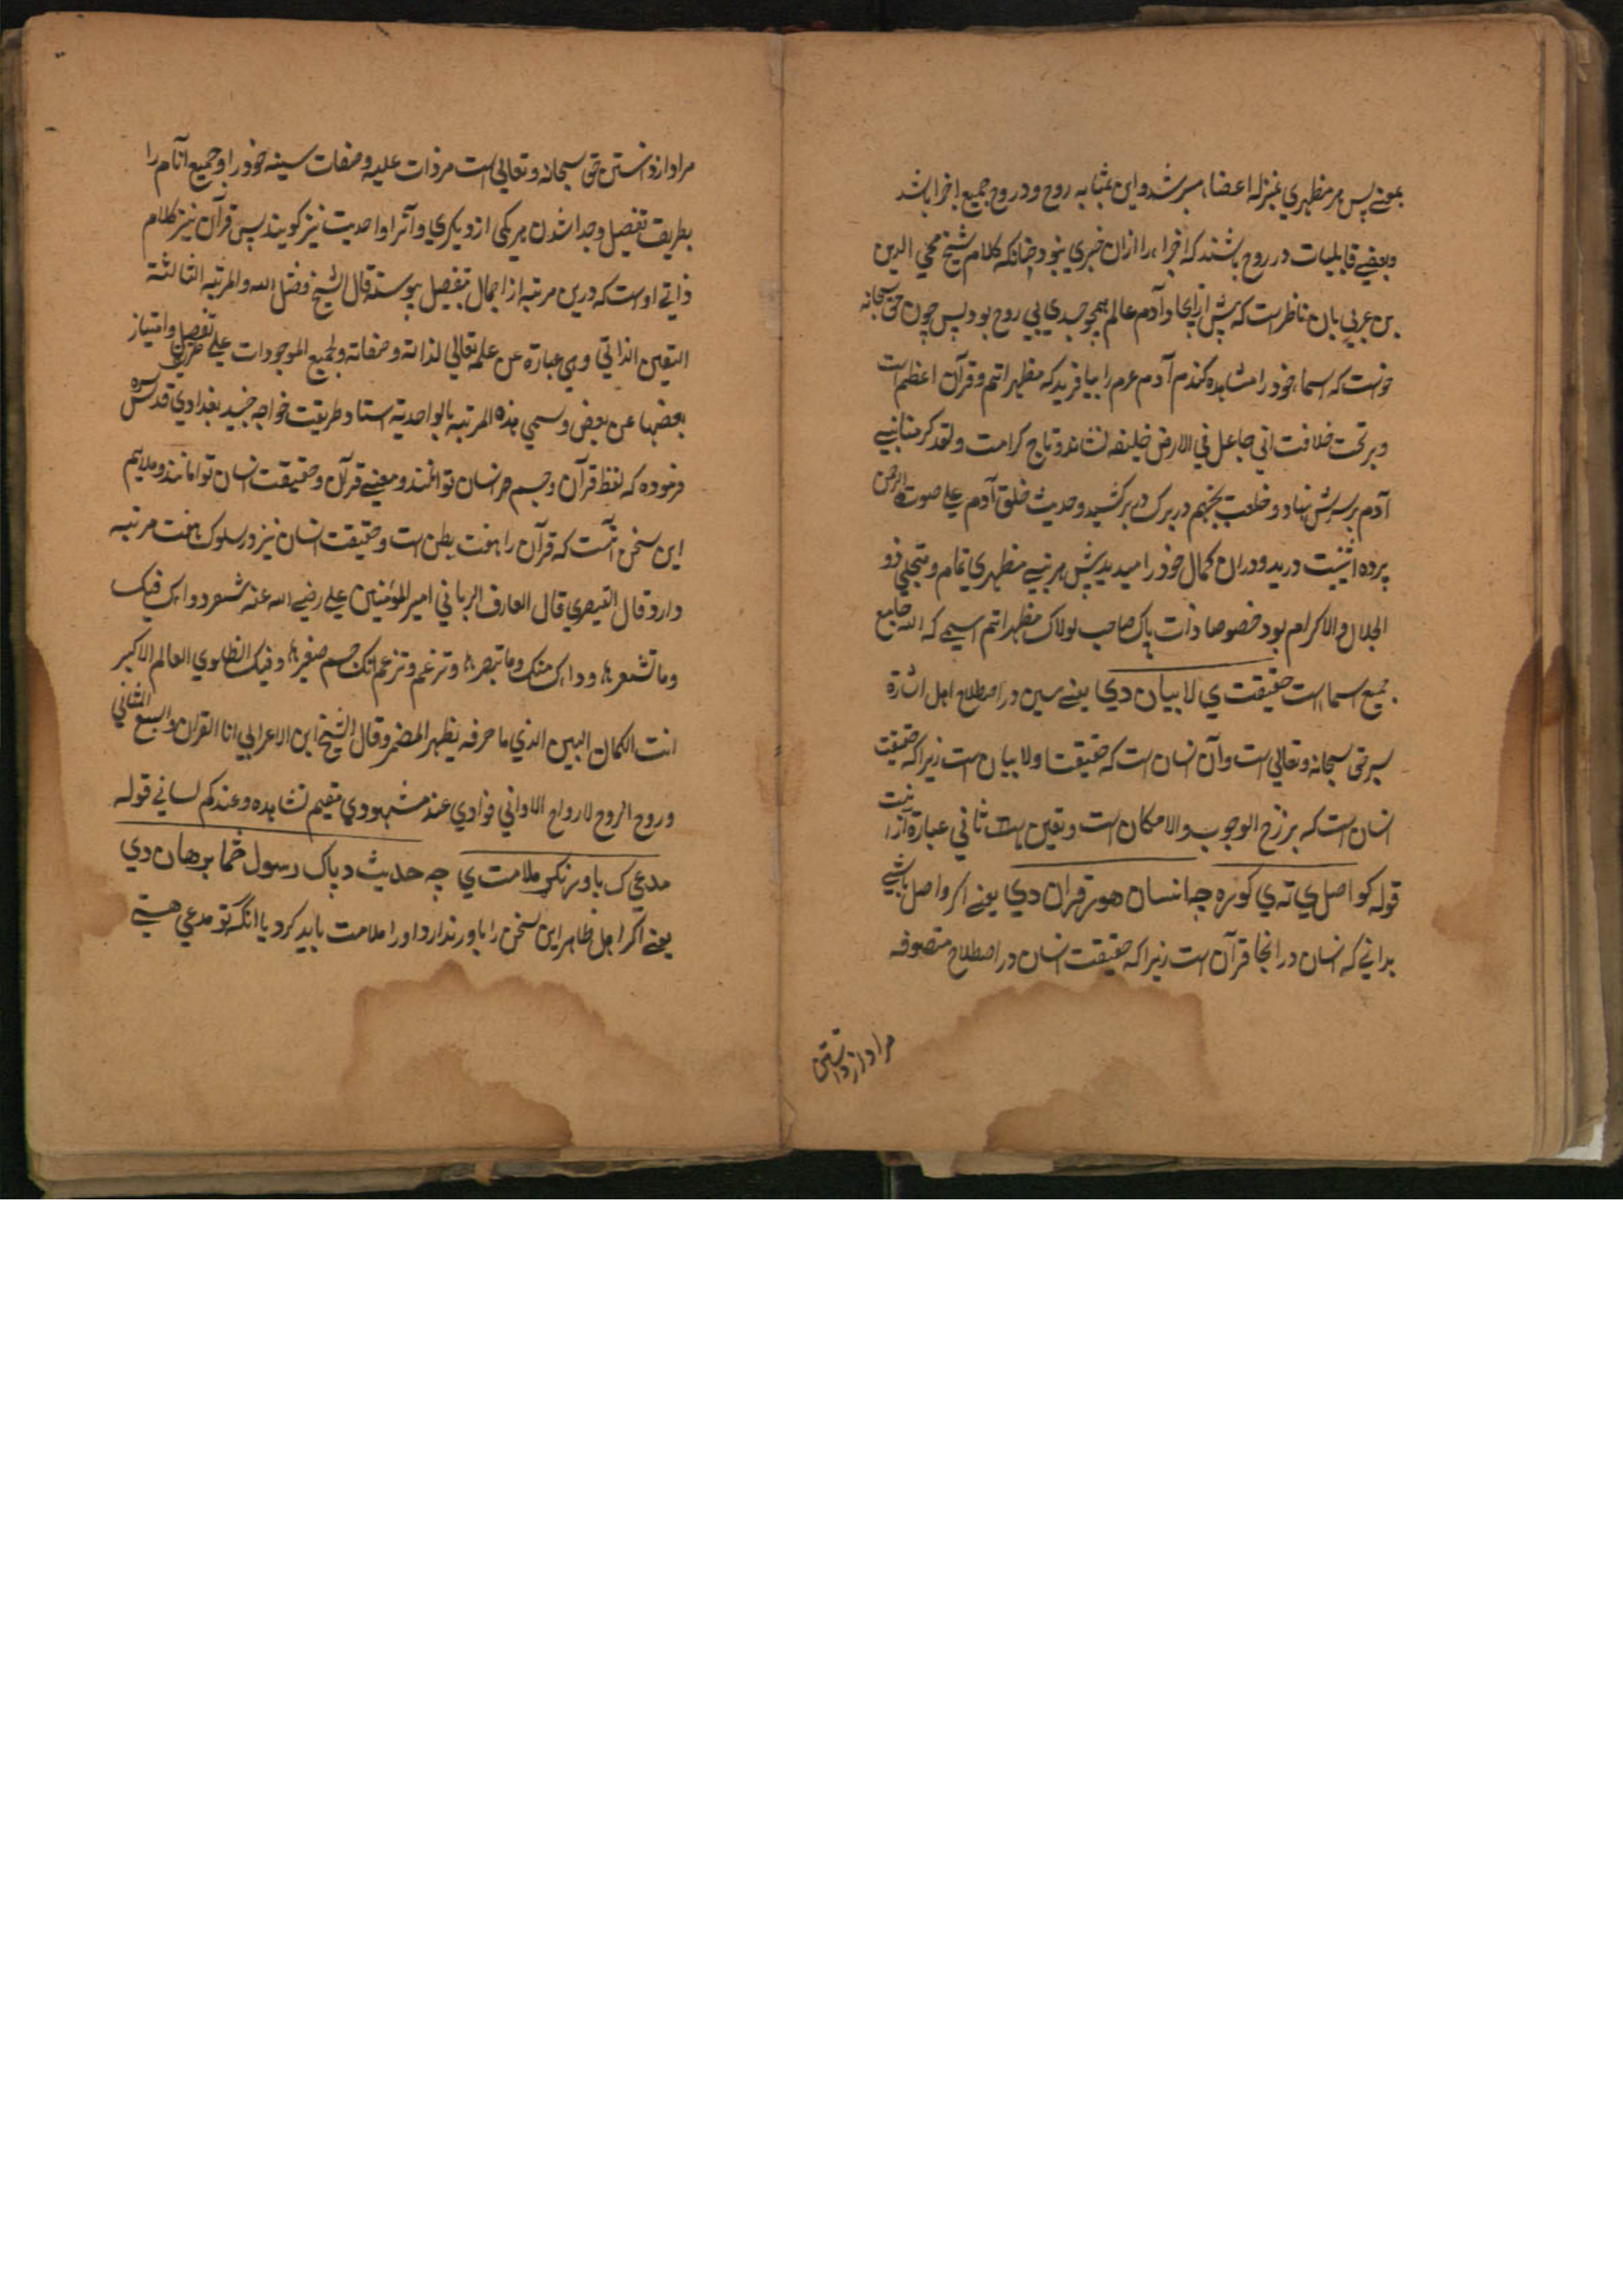 بمعنی پس هر مظهری بمنزله اعضاء مر شد و این بمثابه روح و در روح جمیع اجزا باشد
و بعضی قابلیات در روح باشند که اجزاء را ازان خبری نبود چنانکه کلام شیخ محی الدین
بن عربی بان ناظر است که پیش از ایجاد آدم عالم همچو جسدی بی روح بود پس چون حق سبحانه
خواست که اسماء خود را مشاهده کند آدم را بیافرید که مظهر اتم و قرآن اعظم است
و بر تخت خلافت انی جاعل فی الارض خلیفه نشاند و تاج کرامت ولقد کرمنا بنی
آدم بر سرش نهاد و خلعت یحبهم در بر کشید و حدیث خلق آدم علی صورت الرحمن
پرده اثنیت درید و دران کمال خود را میدید پیش هر نبی مظهری تمام و متجلی ذو
الجلال والاکرام بود خصوصا ذات پاک صاحب لولاک مظهر اتم اسمی که الله جامع
جمیع اسما است حقیقت ي لا بیان دي یعنی سین در اصطلاح اهل اشارة
سر حق سبحانه و تعالی است و آن انسان است که حقیقتا ولا بیان است زیرا که حقیقت
انسان است که برزخ الوجوب والامکان است و تعین ثانی عبارة ازا نیت
قوله کو اصل ي ته ي کوره چه انسان هوتر قران دي یعنی اگر واصل باشی
بدانی که انسان در انجا قرآن است زیرا که حقیقت انسان در اصطلاح متصوفه
مراد از دانستن
مراد از دانستن حق سبحانه و تعالی است مر ذات علیه و صفات سینه خود را و جمیع انام را
بطریق تفصیل و جدا شدن هر یکی از دیگری و آنرا واحدیت نیز گویند پس قرآن نیز کلام
ذاتی اوست که درین مرتبه از اجمال بتفصیل پیوسته قال الشیخ فضل الله والمرتبه الثالثة
التعین الذاتی وهی عبارة عن علمه تعالی لذاته وصفاته ولجمیع الموجودات علی طریق تفصیل وامتیاز
بعضها عن بعض وسمی هذه المرتبه بالواحدیة استاد طریقت خواجه جنید بغدادی قدس سره
فرموده که لفظ قرآن و جسم هر انسان توامانند و معنی قرآن و حقیقت انسان توامانند و ملایم
این سخن آنست که قرآن را هفت بطن است و حقیقت انسان نیز در سلوک هفت مرتبه
دارد قال القیصری قال العارف الربانی امیر المؤمنین علی رضی الله عنه شعر دواک فیک
وما تشعر وداک منک وما تبصر وتزعم وتزعم انک جسم صغیر وفیک انطوی العالم الاکبر
انت الکمان البین الذی باحرفه یظهر المضمر وقال الشیخ ابن الاعرابی انا القران والسبع المثانی
وروح الروح لا روح الاوانی فوادی عند مشهودی مقیم تشاهده وعندکم لسانی قوله
مدعی ک باور نکړ ملامت ي چه حدیث د پاک رسول څما برهان دي
یعنی اگر اهل ظاهر این سخن را باور ندارد او را ملامت باید کرد یا انکه تو مدعی هستی